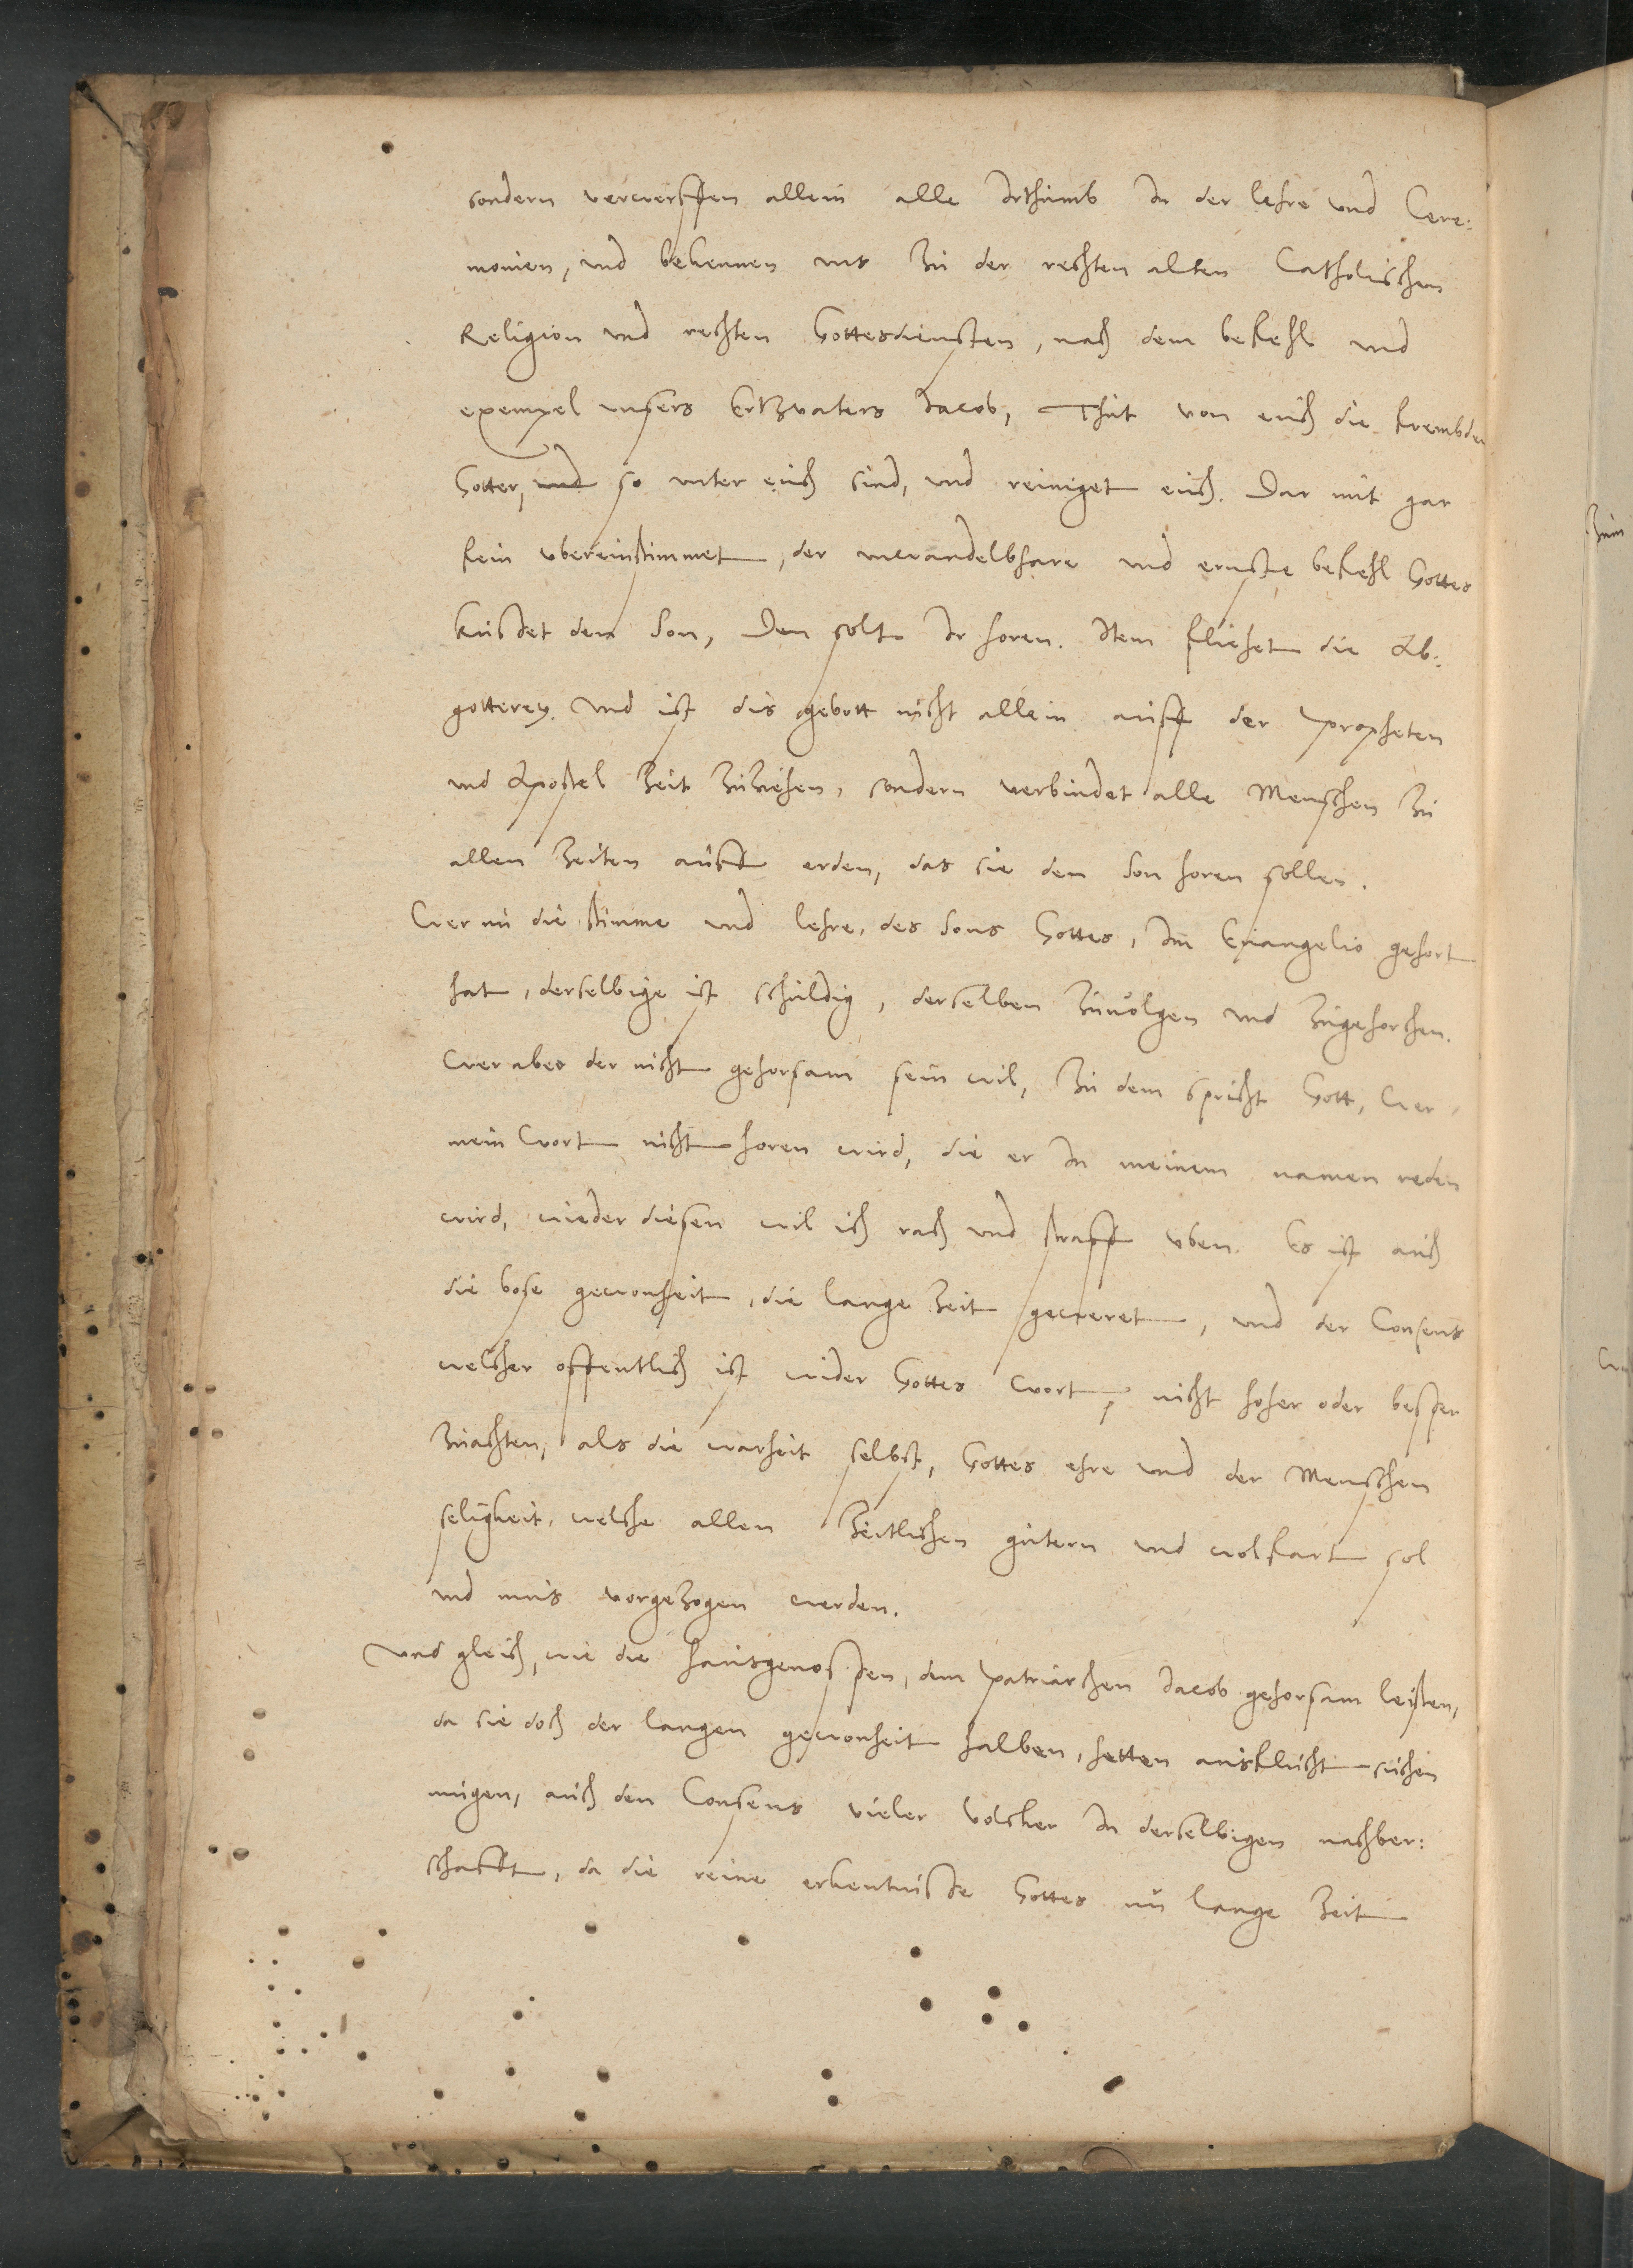 sondern verwerffen allein alle Irthumb In der lehre vnd Cere:
monien, vnd bekennen vns zu der rechten alten Catholischen
Religion vnd rechten Gottesdiensten, nach dem befehl vnd
exempel vnsers Ertzvaters Jacob, Thut von euch die frembden
Gotter, vnd so vnter euch sind, vnd reiniget euch. Dar mit gar
fein vbereinstimmet, der vnwandelbhare vnd ernste befehl Gottes
Kusset den Son, Den solt Ir horen. Item fliehet die Ab:
gotterey. Vnd ist dis gebott nicht allein auff der Propheten
vnd Apostel zeit zuziehen, sondern verbindet alle Menschen zu
allen zeiten auff erden, das sie den Son horen sollen.
Wer nu die stimme vnd lehre, des Sons Gottes, Im Euangelio gehort
hat, derselbige ist schuldig, derselben zuuolgen vnd zugehorchen.
Wer aber der nicht gehorsam sein wil, zu dem spricht Gott, Wer
mein Wort nicht horen wird, die er In meinem namen reden
wird, wieder diesen wil ich rach vnd straff vben. Es ist auch
die bose gewonheit, die lange zeit geweret, vnd der Consens
welcher offentlich ist wider Gottes wort, nicht hoher oder besser
zuachten, als die warheit selbst, Gottes ehre vnd der Menschen
seligkeit, welche allen zeitlichen gutern vnd wolfart sol
vnd mus vorgezogen werden.
Vnd gleich, wie die hausgenossen, dem Patriarchen Jacob gehorsam leisten,
da sie doch der langen gewonheit halben, hetten ausflucht suchen
mugen, auch den Consens vieler Volcker In derselbigen nachber:
schafft, da die reine erkentnisse Gottes nu lange zeit